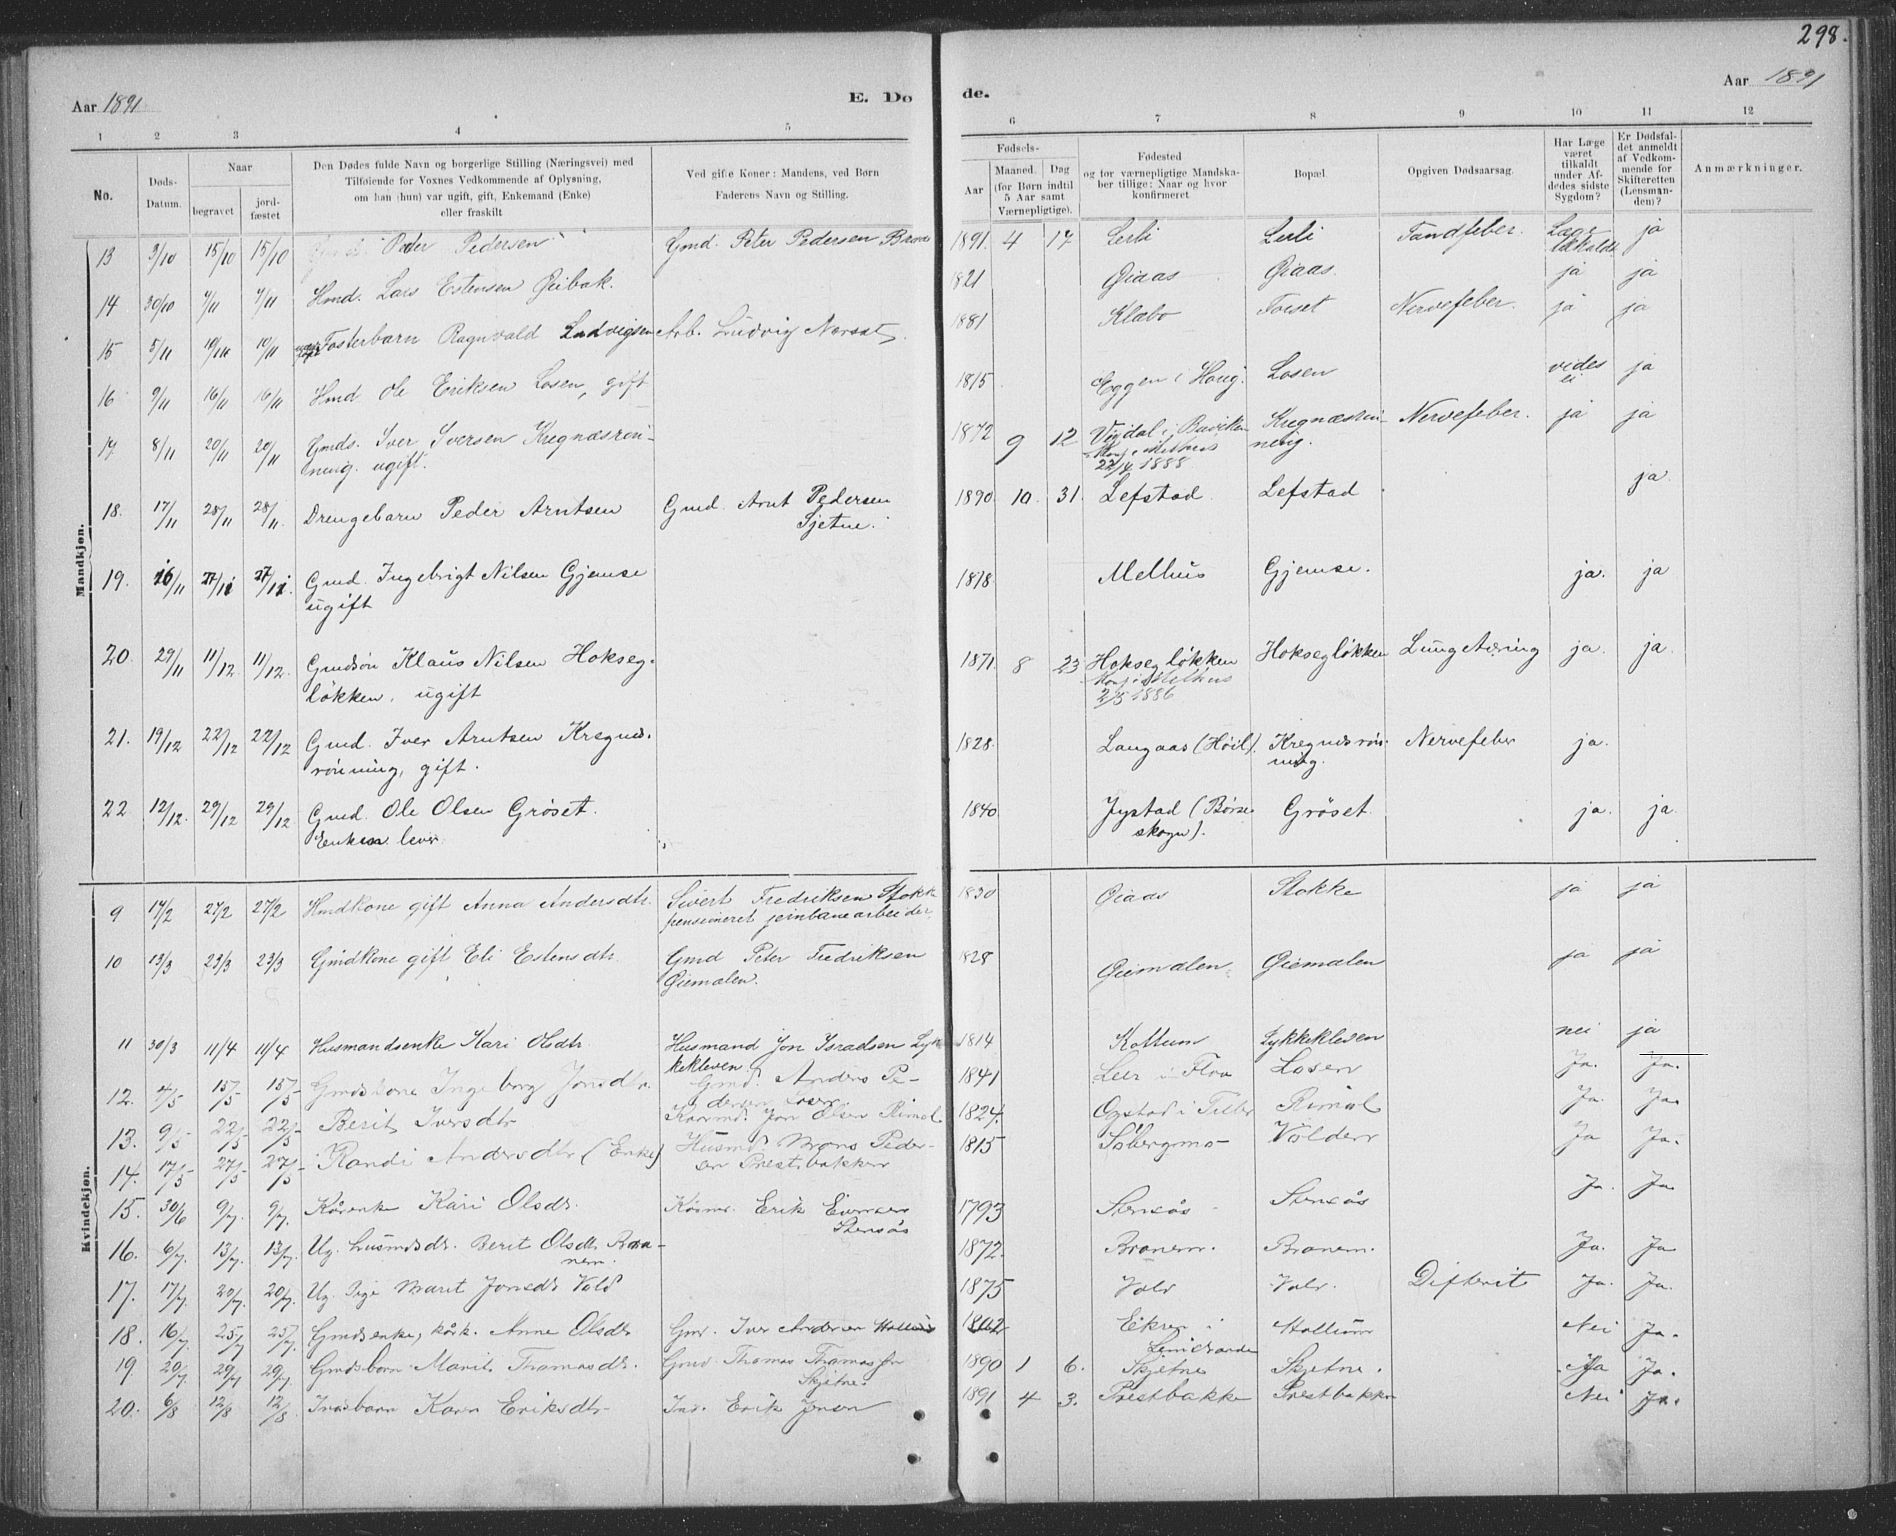 298.
Aar 1891
E. Dø
de.
Aar 1891
1 2 3 4 5 6 7 8 9 10 11 12
No.
Døds-Datum.
Naar
begravet
jord-fæstet
Den Dødes fulde Navn og borgerlige Stilling (Næringsvei) med
Tilføiende for Voxnes Vedkommende af Oplysning,
om han (hun) var ugift, gift, Enkemand (Enke)
eller fraskilt
Ved gifte Koner: Mandens, ved Børn
Faderens Navn og Stilling.
Fødsels-
Aar
Maaned. Dag
(for Børn indtil
5 Aar samt
Værnepligtige).
Fødested
og for værnepligtige Mandska-
ber tillige: Naar og hvor
konfirmeret
Bopæl.
Opgiven Dødsaarsag.
Har Læge
været
tilkaldt
under Af-
dødes sidste
Sygdom?
Er Dødsfal-
det anmeldt
af Vedkom-
mende for
Skifteretten
(Lensman-
den)?
Anmærkninger.
Mandkjøn.
13 3/10 15/10 15/10 Peder Pedersen Gmd. Peter Pedersen 1891. 4 17 Lerli Lerli Tandfeber. ja
14 30/10 7/11 7/11 Hmd. Lars Estensen Øibak. 1821 Øiaas Øiaas. ja ja
15 5/11 10/11 10/11 Fosterbarn Ragnvald Ludvigsen Arb. Ludvig Nersat. 1881 Klæbo Torset Nervefeber. ja ja
16 9/11 16/11 16/11 Hmd Ole Eriksen Losen, gift 1815 Eggen i Hørig. Losen vides ja
ei
17 8/11 20/11 20/11 Gmds. Iver Iversen Kregnæsrøn- 1872 9 12 Kregnæsrøn- Nervefeber. ja ja
ning. ugift. ning.
22/4 1888
18. 17/11 28/11 28/11. Drengebarn Peder Arntsen Gmd. Arnt Pedersen 1890. 10. 31. Lefstad. Lefstad ja.
Sjetne.
19. 16/11 27/11 27/11. Gmd. Ingebrigt Nilsen Gjemse 1818. Melhus Gjemse. ja. ja
ugift
20. 29/11 11/12. 11/12. Gmdsøn Klaus Nilsen Hokseg- 1871. 8 23 Hoksegløkken Hoksegløkken Lungetæring ja. ja.
løkken. ugift
Konf. i Melhus
2/5 1886
21. 19/12 22/12 22/12 Gmd. Iver Arntsen Kregnæs- 1828. Langaas (Høil). Kregnæsrøn- Nervefeber ja.
rønning, gift. ning.
22 12/12. 29/12 29/12 Gmd. Ole Olsen Grøset. 1840 Jystad (Børse Grøset. ja. ja.
Enken lever. skogn).
Kvindekjøn.
9 14/2 27/2 27/2 Hmdkone gift Anna Andersdtr. Sivert Fredriksen Stokk 1830 Øiaas Stokke ja ja
pensioneret jernbanearbeider.
10 13/3 23/3 23/3 Gmdkone gift Eli Estensdtr. Gmd Peter Fredriksen 1828 Øiemælen Øiemælen ja ja
Øiemælen.
11 30/3 11/4 11/4 Husmandsenke Kari Olsdtr. Husmand Jon Israelsen Lyk 1814 Kollum Lykkekleven nei ja
kekleven
12. 4/5 15/5 15/5 Gmdskone Ingeborg Jonsdtr. Gmd. Anders Pe- 1841 Leer i Flaa Losen Ja. Ja.
dersen Losen
13. 9/5 22/5 22/5 Berit Iversdtr Kaarmd. Jon Olsen Rimol 1824. i Tiller Rimol Ja. Ja.
14. 17/5 27/5 27/5 Randi Andersdtr (Enke) Husmd. Mons Peder- 1815 Søbergmo Volden Ja Ja.
sen Prestbakken
15. 30/6 9/7. 9/7. Kårenke Kari Olsdtr. Kårmd. Erik 1793 Stensås Stensås Ja. Ja.
Stensås
16. 6/7 13/7. 13/7. Ug. husmdsdr. Berit Olsdtr. Bra- 1872. Branem. Branem. Ja. Ja
nem.
17. 17/7. 20/7. 20/7. Ug. Pige Marit Jonsdtr Vold 1875 Vold Vold. Difterit Ja. Ja.
18. 16/7 25/7 25/7. Gmdsenke, kårk. Anne Olsdtr Gmd. Iver Andersen Hollum 1802 Eikren i Hollum Nei Ja.
19 20/7 29/7 29/7. Gmdsbarn Marit Thomasdtr. Gmd. Thomas Thomassen 1890 1 6. Skjetne Skjetne. Ja Ja.
Skjetne.
20. 6/8 12/8 12/8 Indbarn Karen Eriksdtr Ind. Erik Jensen 1891 4 3. Prestbakke Prestbakken Nei Ja.